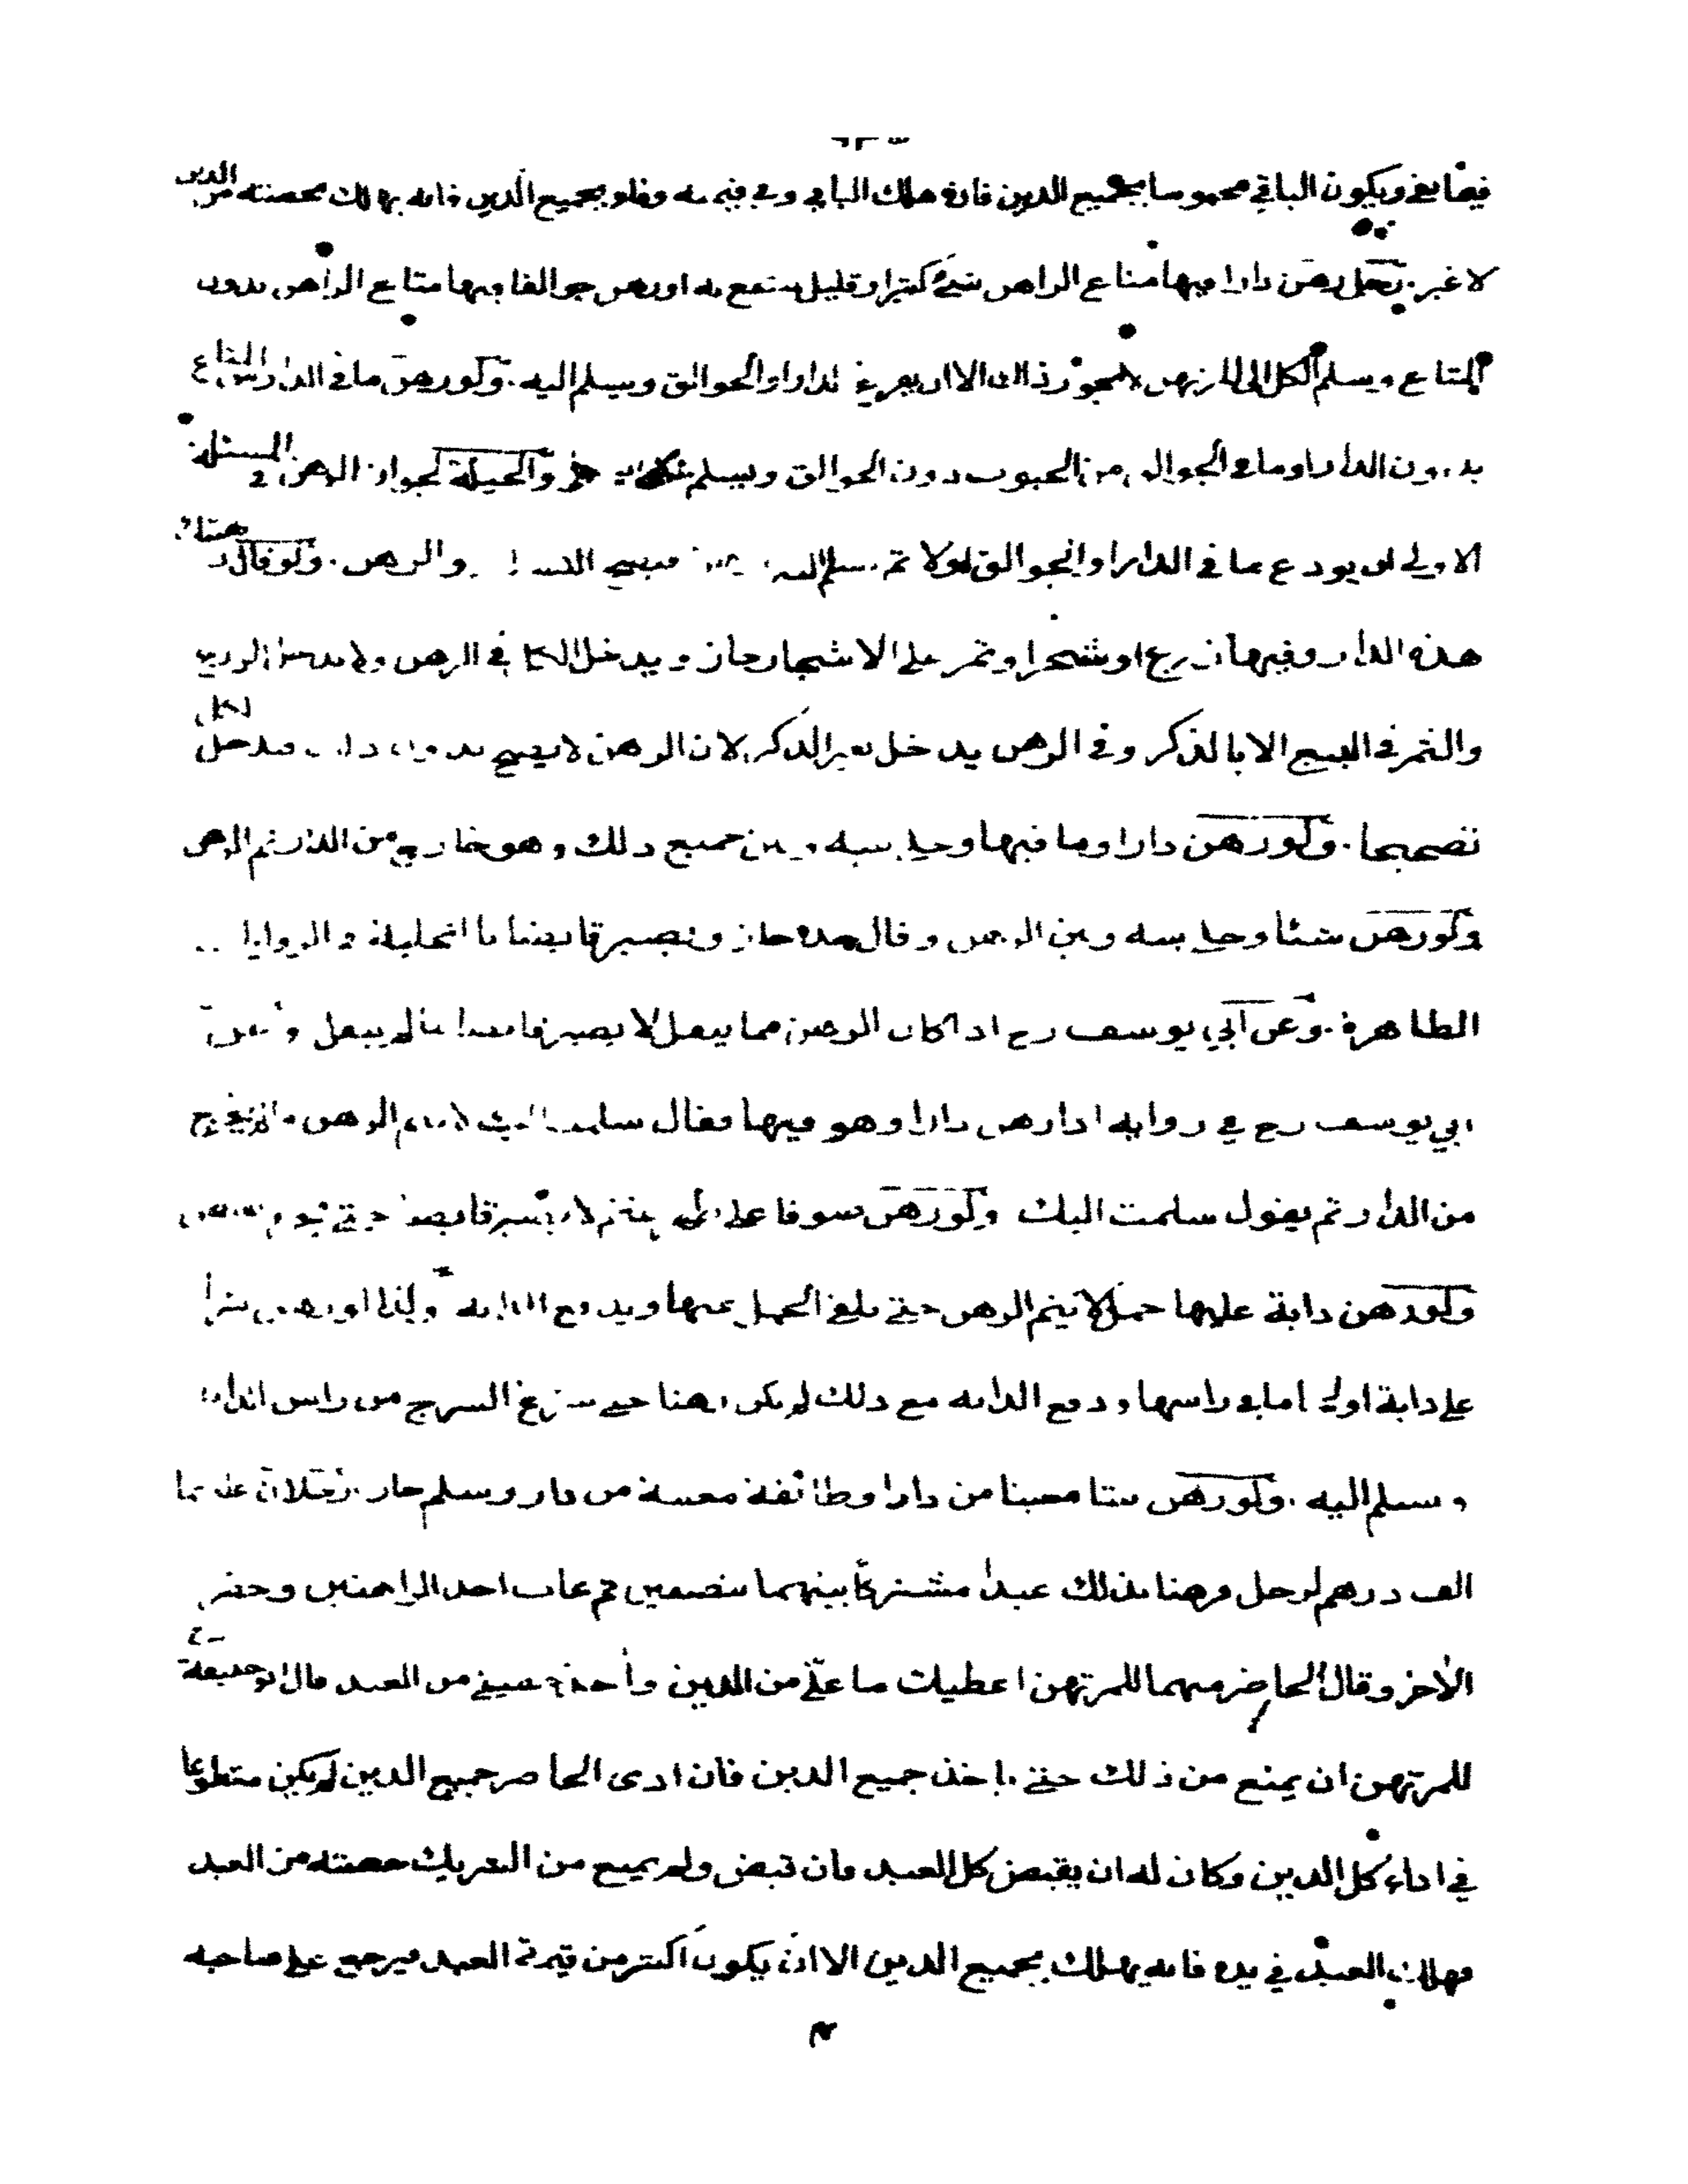 فيما بقي ويكون الباقي محبوسا بجميع الدين فان هلك الباقي وفي قيمته وفاء بجميع الدين فانه يهلك بحصته من الدين
لا غير. رجل رهن دارا فيها متاع الراهن شيء كثير او قليل ينتفع به او رهن جوالقا فيها متاع الراهن بدون
المتاع ويسلم الكل الى المرتهن لا يجوز ذلك الا ان يفرغ الدار او الجوالق ويسلم اليه. ولو رهن ما في الدار من المتاع
بدون الدار او ما في الجوالق من الحبوب دون الجوالق وسلم جاز والحيلة لجواز الرهن في المسئلة
الاولى ان يودع ما في الدار او الجوالق اولا ثم يسلم اليه فيصح التسليم والرهن. ولو قال رهنتك
هذه الدار وفيها زرع او شجر او ثمر على الاشجار جاز ويدخل الكل في الرهن ولا يدخل الزرع
والثمر في البيع الا بالذكر وفي الرهن يدخل بغير الذكر لان الرهن لا يصح بدون ذلك فيدخل الكل
تصحيحا. ولو رهن دارا وما فيها وخلى بينه وبين جميع ذلك وهو خارج من الدار تم الرهن
ولو رهن شيئا وخلى بينه وبين الرهن وقال جاز ويصير قابضا بالتخلية في الروايات
الظاهرة. وعن ابي يوسف رح اذا كان الرهن مما ينقل لا يصير قابضا ما لم ينقل وعن
ابي يوسف رح في رواية اذا رهن دارا وهو فيها فقال سلمت اليك لا يتم الرهن ما لم يخرج
من الدار ثم يقول سلمت اليك ولو رهن صوفا على غنم لا يصير قابضا حتى
ولو رهن دابة عليها حمل لا يتم الرهن حتى يلقي الحمل عنها ويدفع الدابة ولذا لو رهن سرجا
على دابة او لجاما في راسها ودفع الدابة مع ذلك لم يكن رهنا حتى ينزع السرج من راس الدابة
ويسلم اليه. ولو رهن بيتا معينا من دار او طائفة معينة من دار وسلم جاز. رجلان عليهما
الف درهم لرجل فرهنا بذلك عبدا مشتركا بينهما نصفين ثم غاب احد الراهنين وحضر
الآخر وقال الحاضر منهما للمرتهن اعطيك ما علي من الدين وآخذ نصيبي من العبد قال ابو حنيفة رح
للمرتهن ان يمنع من ذلك حتى ياخذ جميع الدين فان ادى الحاضر جميع الدين لم يكن متطوعا
في اداء كل الدين وكان له ان يقبض كل العبد فان قبض ولم يمنع من الشريك حصته من العبد
فهلك العبد في يده فانه يهلك بجميع الدين الا ان يكون اكثر من قيمة العبد فيرجع على صاحبه